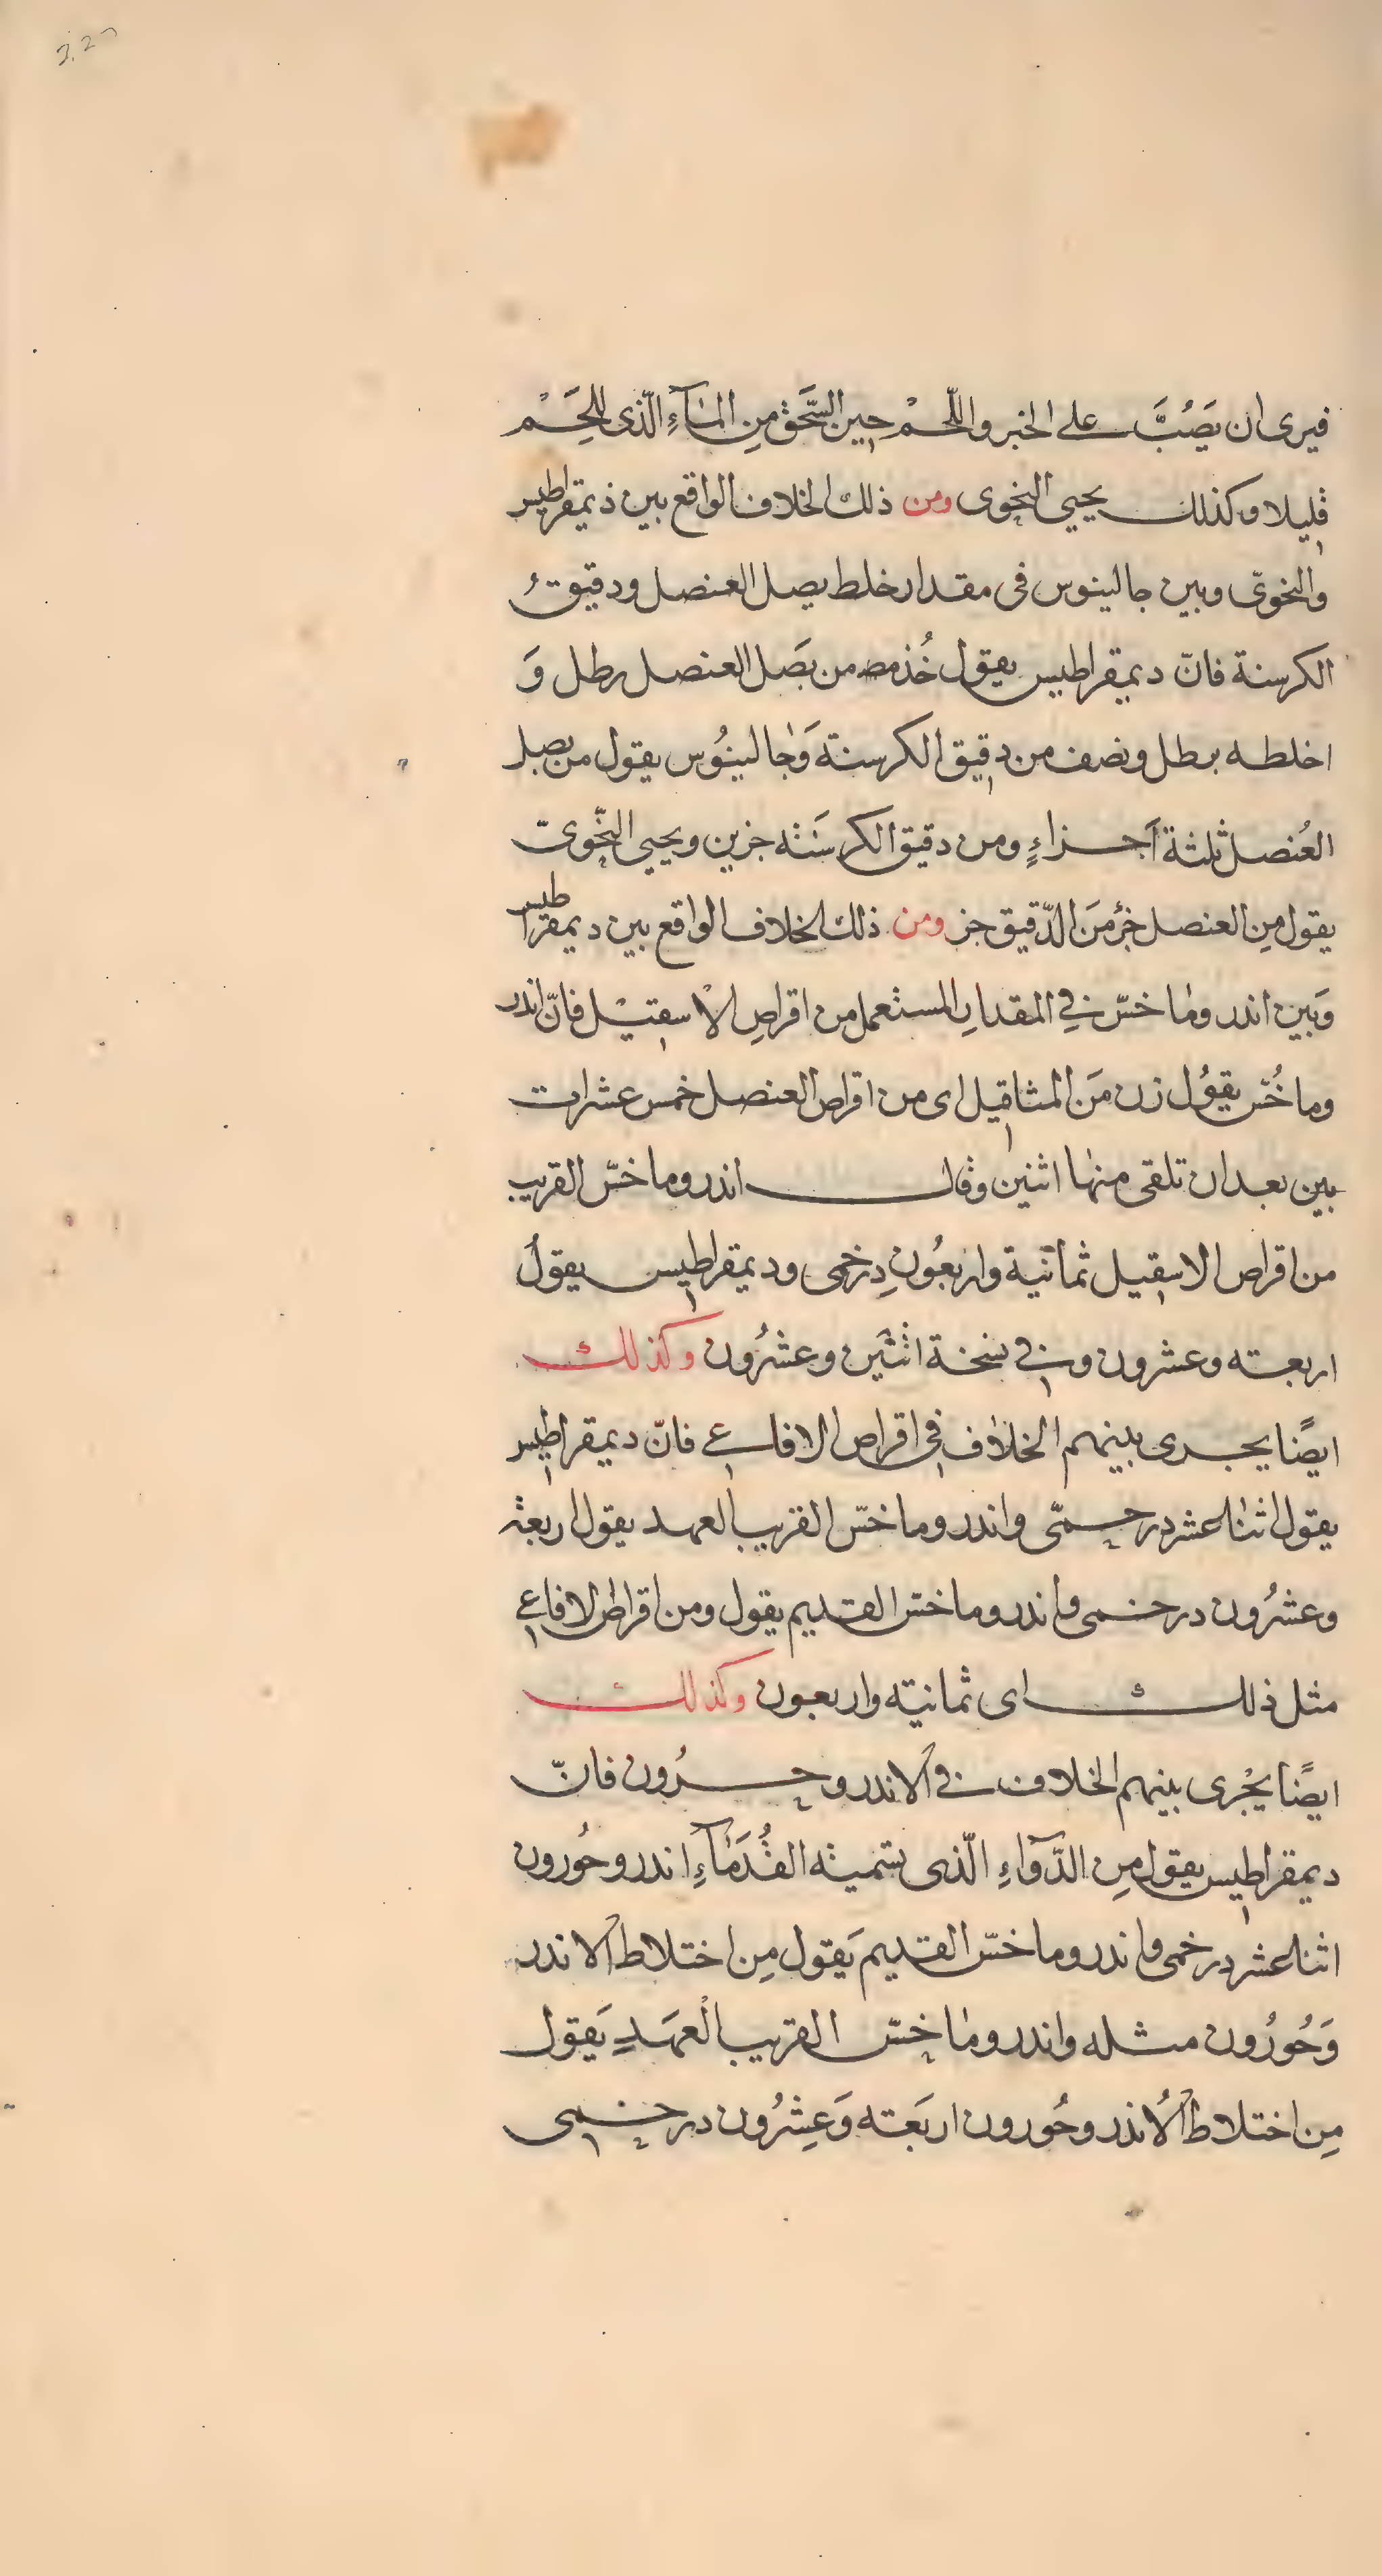 فيرى ان يَصُبَّ على الخبز واللّحْم حين السَّحَق مِن المَآءِ الّذى للحِّمْ
قليلا وكذلك يحيى النحوى ومن ذلك الخلاف الواقع بين ذيمقراطيس
والنحوىّ وبين جالينوس فى مقدار خلط بصل العنصل ودقيق
الكرسنة فانّ ديمقراطيس يقول خُذ من بصَل العنصل رطل وَ
اخلطه برطل ونصف من دقيق الكرسنة وَجالينُوس يقول من بصل
العُنصل ثلثة اَجزاءٍ ومن دقيق الكرسَنه جزين ويحيى النّحوىّ
يقول مِن العنصل جزؤ مَن الدّقيق جز ومن ذلك الخلاف الواقع بين ديمقراطيس
وَبين اندروماخسّ فى المقدار المستعمل من اقراصِ الاسقتيْل فانّ اندر
وماخُسّ يقوُل زن مَن المثاقيل اى من اقراص العنصل خمس عشرات
بين بعد ان تلقى منها اثنين وقال اندروماخسّ القريب
من اقراص الاسقيل ثمانية واربعُون دِرخمى وديمقراطيس يقولُ
اربعته وعشرون وفى نسخة اثنَين وعشرُون وكذلك
ايضًا يجرى بينهم الخلاف فى اقراص الافاعى فانّ ديمقراطيس
يقول اثنا عشر درحمىّ واندروماخسّ القريب العهد يقول اربعة
وعشرُون درخمى واندروماخسّ القديم يقول ومن اقراص الافاعى
مثل ذلك اى ثمانيته واربعون وكذلك
ايضًا يجْرى بينهم الخلاف فى الاندروحرُون فانّ
ديمقراطيس يقول مِن الدَّوآءِ الّذى تسميه القُدَمَآءِ اندروحُورون
اثنا عشر درخمى واندروماخسّ القديم يَقول مِن اختلاط الاندر
وَحُورُون مثله واندروماخسّ القريب العهَدِ يَقول
مِن اختلاط الاُنذروحُورون اربَعته وَعِشرُون درخمى